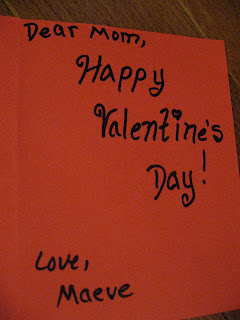 Dear Mom,
Happy
Valentine's
Day!
Love,
Maeve